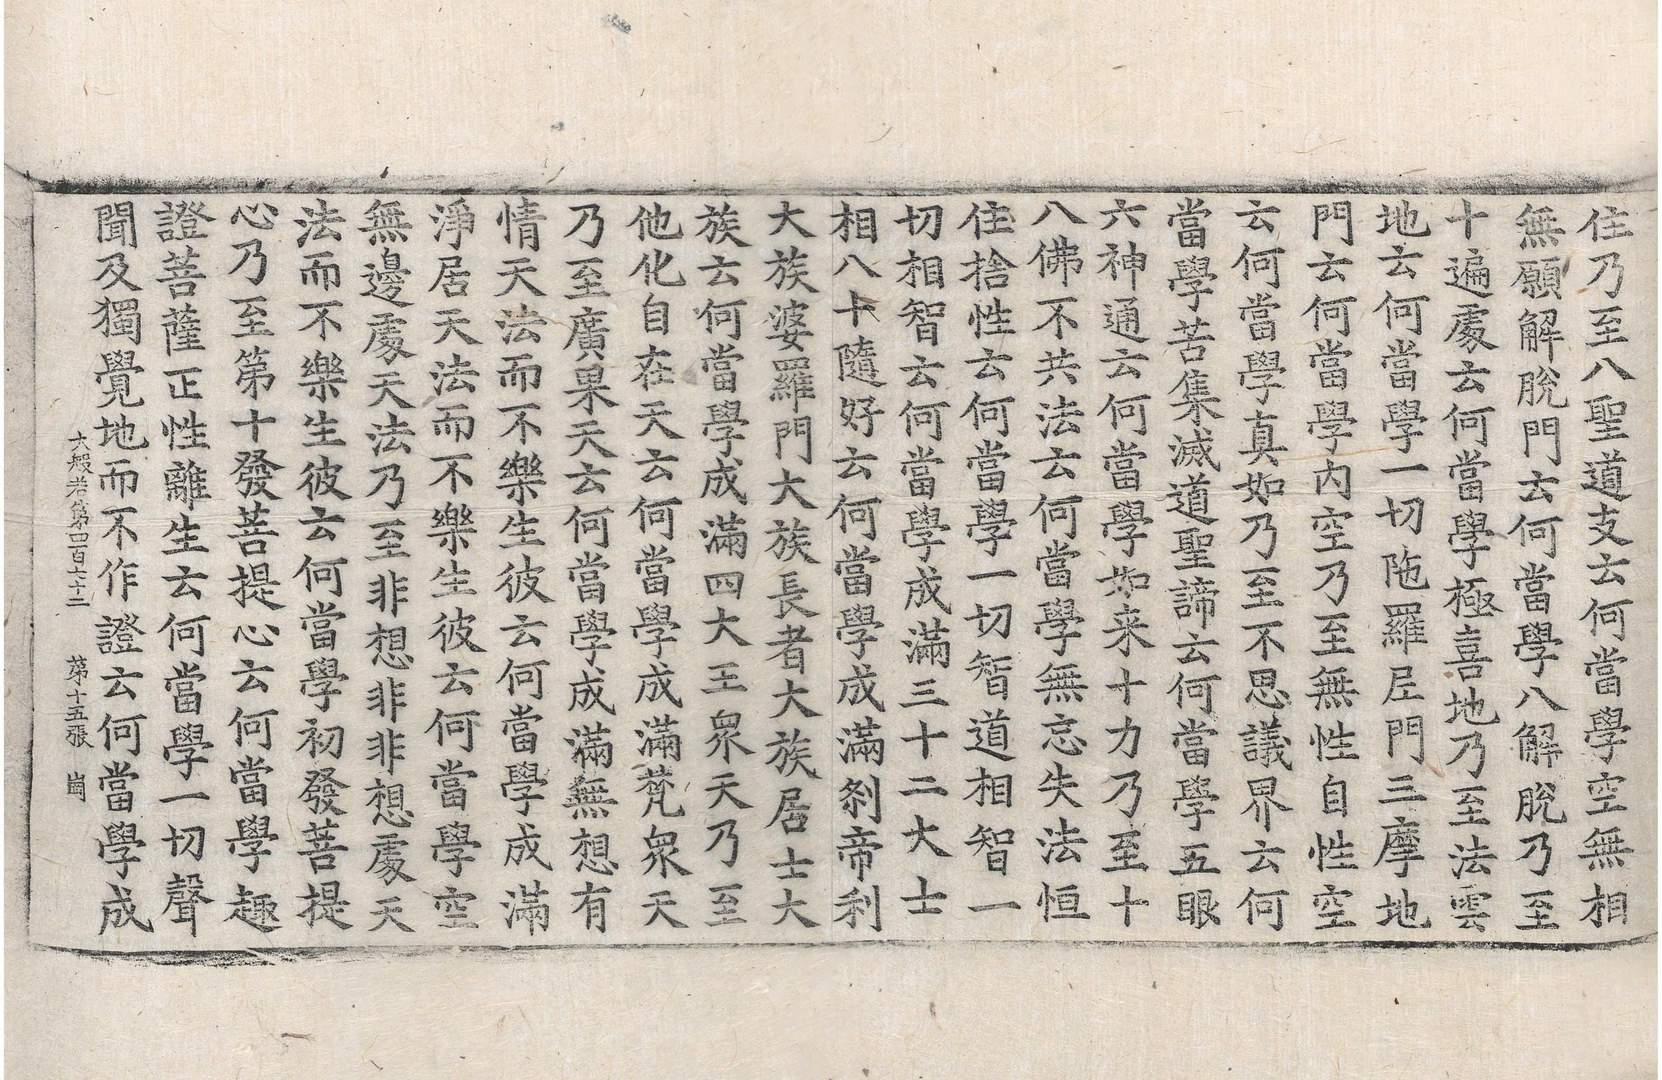 住乃至八聖道支云何當學空無相
無願解脫門云何當學八解脫乃至
十遍處云何當學極喜地乃至法雲
地云何當學一切陁羅尼門三摩地
門云何當學內空乃至無性自性空
云何當學真如乃至不思議界云何
當學苦集滅道聖諦云何當學五眼
六神通云何當學如来十力乃至十
八佛不共法云何當學無忘失法恒
住捨性云何當學一切智道相智一
切相智云何當學成滿三十二大士
相八十隨好云何當學成滿刹帝利
大族婆羅門大族長者大族居士大
族云何當學成滿四大王衆天乃至
他化自在天云何當學成滿梵衆天
乃至廣果天云何當學成滿無想有
情天法而不樂生彼云何當學成滿
淨居天法而不樂生彼云何當學空
無邊處天法乃至非想非非想處天
法而不樂生彼云何當學初發菩提
心乃至第十發菩提心云何當學趣
證菩薩正性離生云何當學一切聲
聞及獨覺地而不作證云何當學成
大般若第四百六十二 第十五張 崗